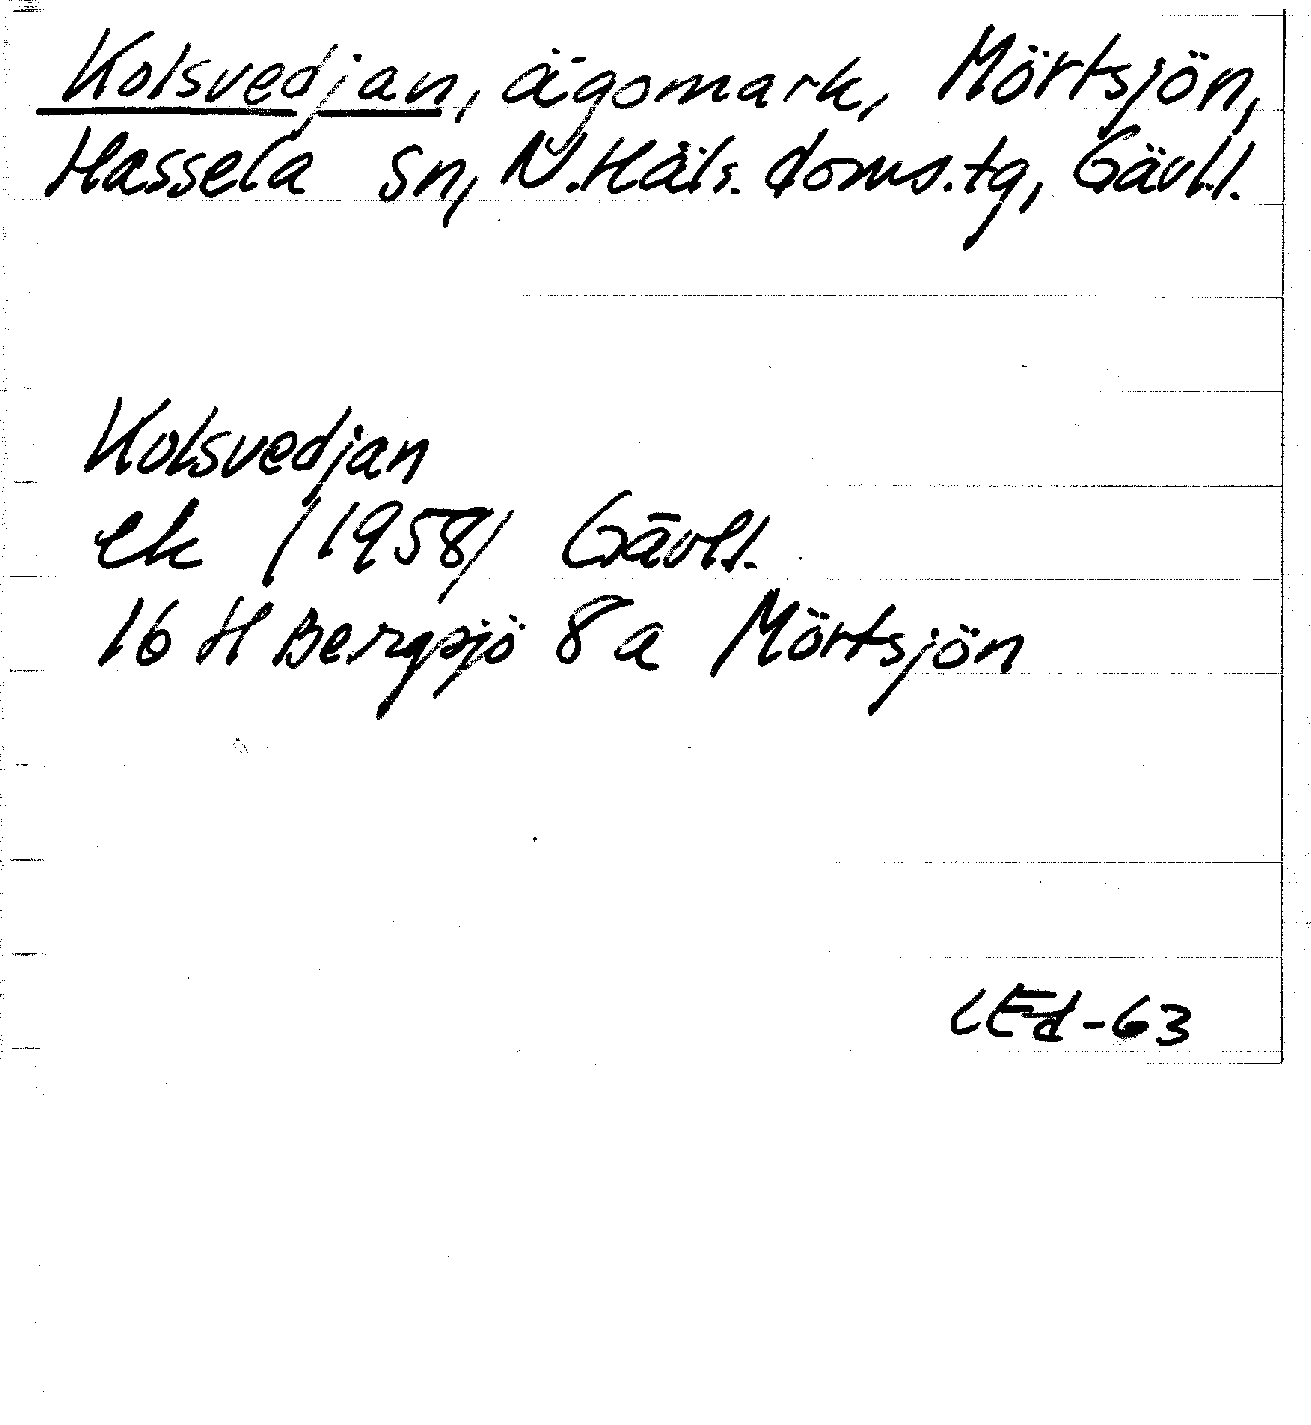 Kolsvedjan, ägomark, Mörtsjön,
Hassela sn, N.Häls. doms.tg, Gävl.l.
Kolsvedjan
ek /1958/ Gävl.l.
16 H Bergsjö 8 a Mörtsjön
LEd-63